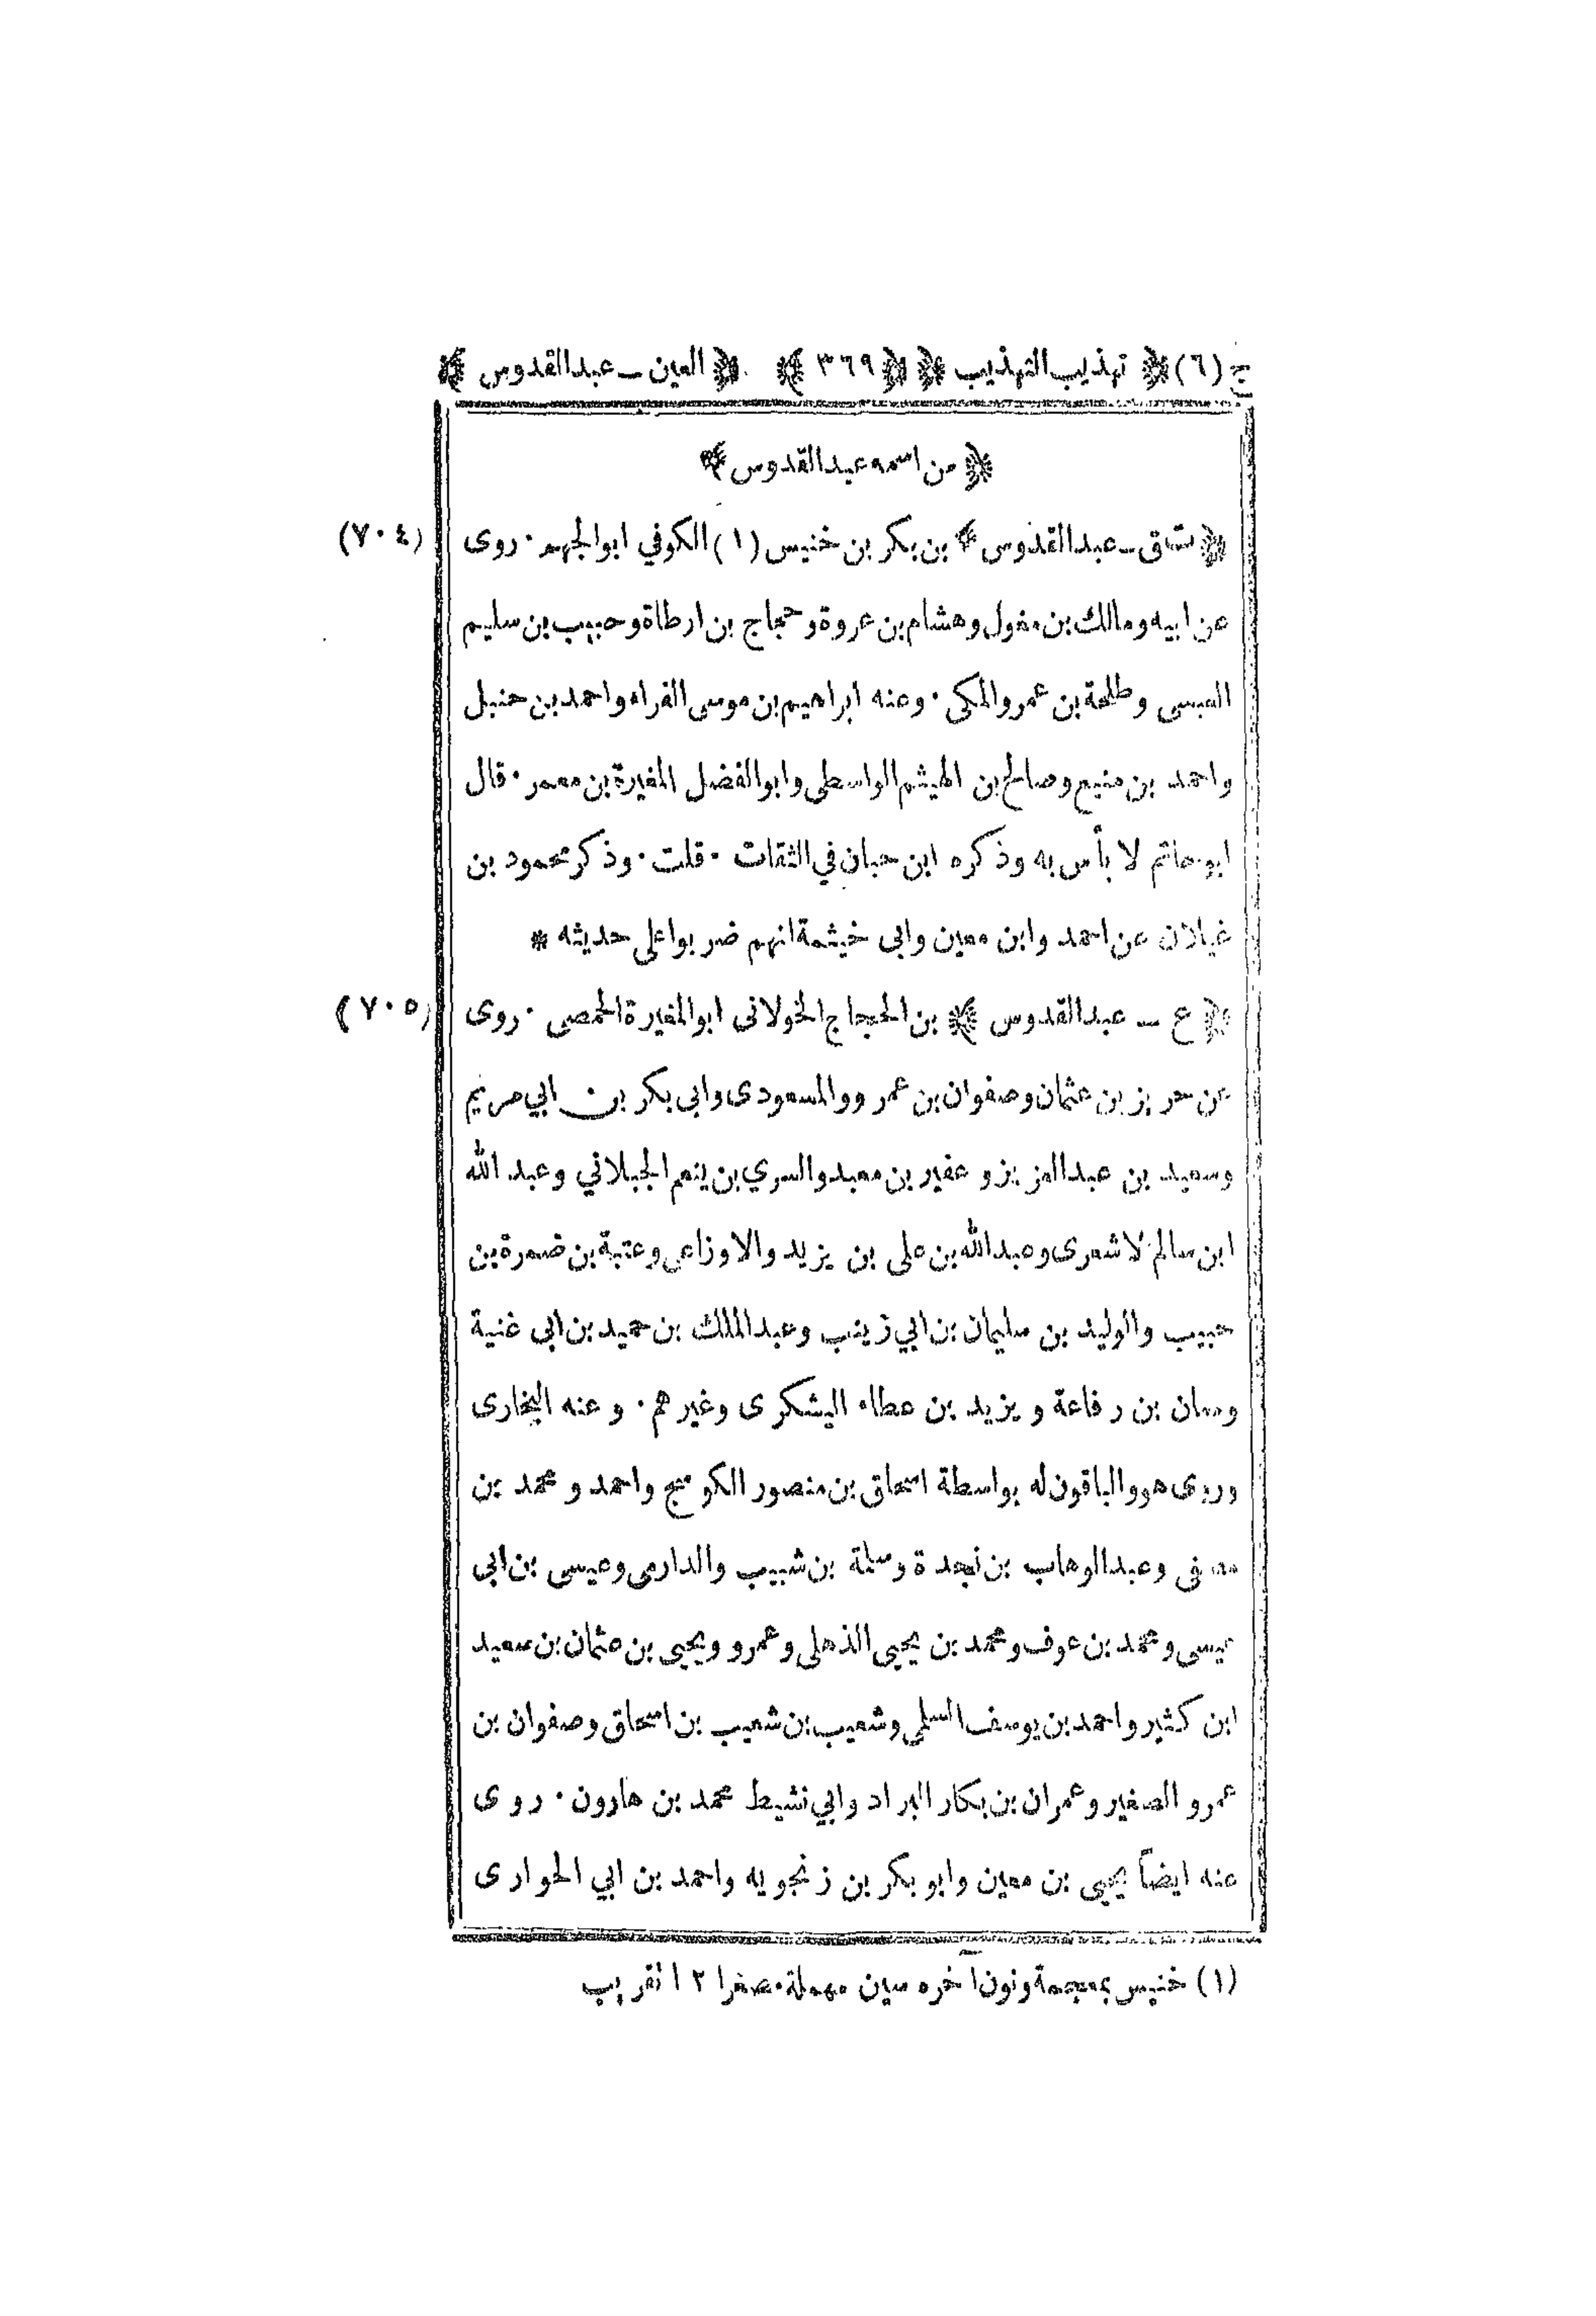 ج (٦) ﴿ تهذيب التهذيب ﴾ ﴿ ٣٦٩ ﴾ ﴿ العين ـ عبد القدوس ﴾
﴿ من اسمه عبد القدوس ﴾
﴿ ت ق ـ عبد القدوس ﴾ بن بكر بن خنيس (١) الكوفي ابو الجهم · روى (٧٠٤)
عن ابيه ومالك بن مغول وهشام بن عروة وحجاج بن ارطاة وحبيب بن سليم
العبسى وطلحة بن عمرو المكى · وعنه ابراهيم بن موسى الفراء واحمد بن حنبل
واحمد بن منيع وصالح بن الهيثم الواسطى وابو الفضل المغيرة بن معمر · قال
ابو حاتم لا بأس به وذكره ابن حبان في الثقات · قلت · وذكر محمود بن
غيلان عن احمد وابن معين وابى خيثمة انهم ضربوا على حديثه *
﴿ ع ـ عبد القدوس ﴾ بن الحجاج الخولانى ابو المغيرة الحمصى · روى (٧٠٥)
عن حريز بن عثمان وصفوان بن عمرو والمسعودى وابى بكر بن ابي مريم
وسعيد بن عبد العزيز وعفير بن معبد والسري بن ينعم الجبلاني وعبد الله
ابن سالم الاشعرى وعبد الله بن على بن يزيد والاوزاعى وعتبة بن ضمرة بن
حبيب والوليد بن سليمان بن ابي زينب وعبد الملك بن حميد بن ابى غنية
ومعان بن رفاعة ويزيد بن عطاء اليشكرى وغيرهم · وعنه البخارى
وروى هو والباقون له بواسطة اسحاق بن منصور الكوسج واحمد ومحمد بن
مصفى وعبد الوهاب بن نجدة وسلمة بن شبيب والدارمى وعيسى بن ابى
عيسى ومحمد بن عوف ومحمد بن يحيى الذهلى وعمرو ويحيى بن عثمان بن سعيد
ابن كثير واحمد بن يوسف السلمى وشعيب بن شعيب بن اسحاق وصفوان بن
عمرو الصغير وعمران بن بكار البراد وابي نشيط محمد بن هارون · روى
عنه ايضاً يحيى بن معين وابو بكر بن زنجويه واحمد بن ابي الحوارى
(١) خنيس بمعجمة ونون آخره سين مهملة مصغرا ١٢ تقريب